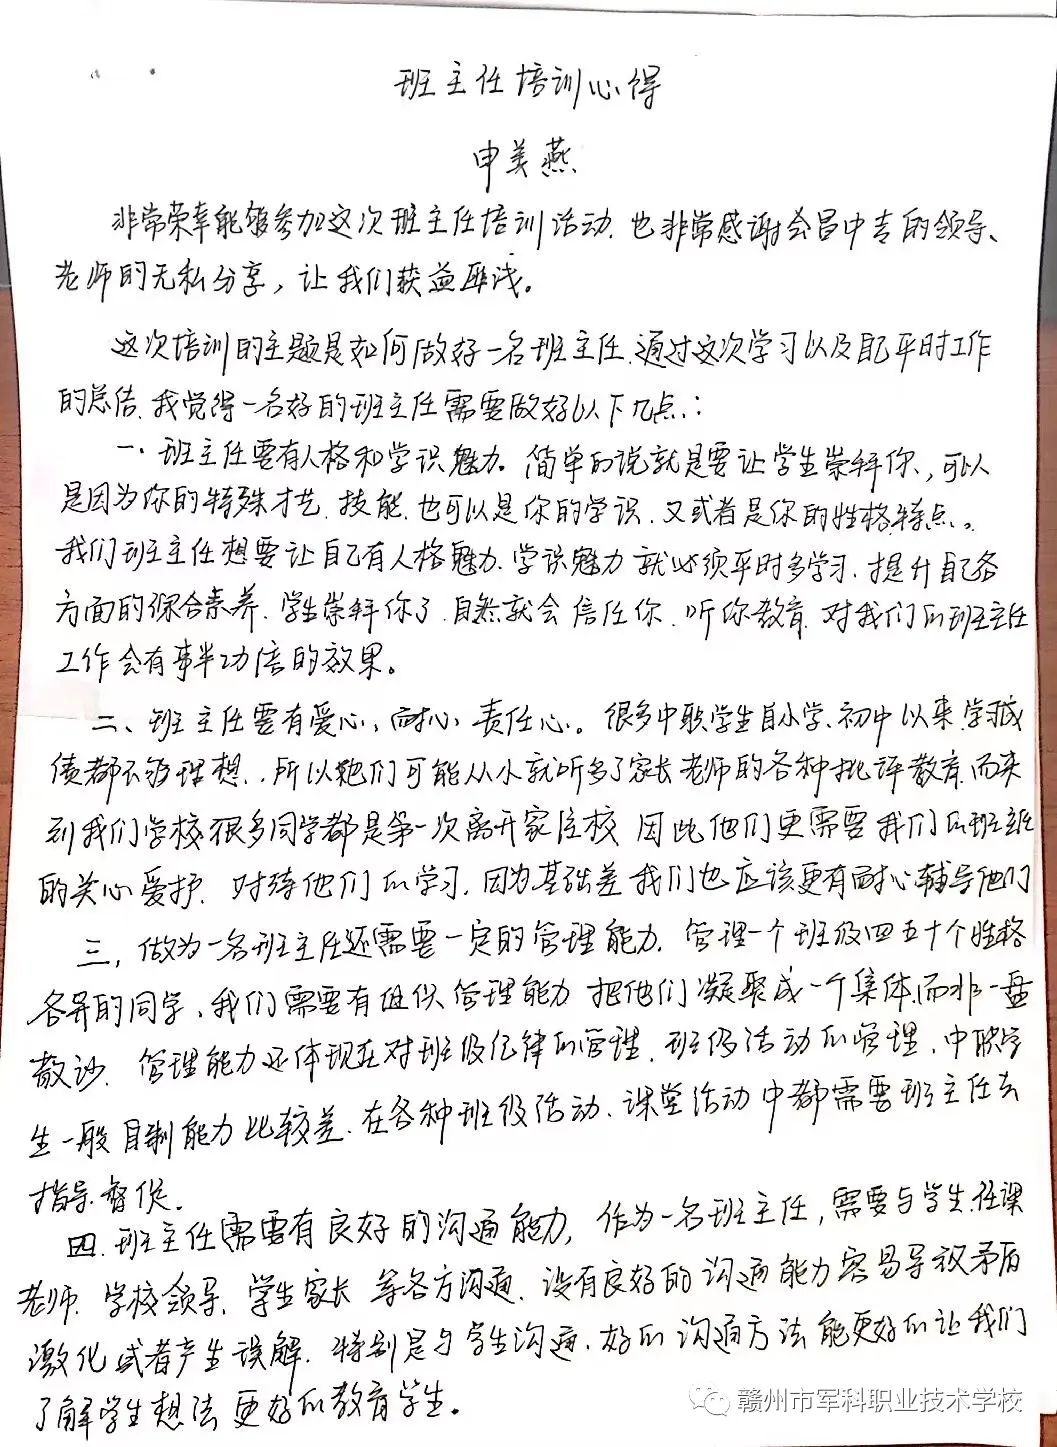 班主任培训心得
申美燕
非常荣幸能够参加这次班主任培训活动.也非常感谢会昌中专的领导、
老师的无私分享，让我们获益匪浅。
这次培训的主题是如何做好一名班主任.通过这次学习以及自己平时工作
的总结.我觉得一名好的班主任需要做好以下几点:
一.班主任要有人格和学识魅力。简单的说就是要让学生崇拜你,可以
是因为你的特殊才艺.技能.也可以是你的学识.又或者是你的性格特点。
我们班主任想要让自己有人格魅力.学识魅力就必须平时多学习.提升自己各
方面的综合素养.学生崇拜你了.自然就会信任你.听你教育.对我们的班主任
工作会有事半功倍的效果。
二、班主任要有爱心,耐心,责任心。很多中职学生自小学、初中以来学习成
绩都不够理想.所以他们可能从小就听多了家长老师的各种批评教育.而来
到我们学校很多同学都是第一次离开家住校 因此他们更需要我们的班主任
的关心爱护.对待他们的学习.因为基础差我们也应该更有耐心辅导他们
三,做为一名班主任还需要一定的管理能力.管理一个班级四五十个性格
各异的同学、我们需要有组织管理能力 把他们凝聚成一个集体,而非一盘
散沙.管理能力还体现在对班级纪律的管理.班级活动的管理.中职学
生一般自制能力比较差.在各种班级活动.课堂活动中都需要班主任去
指导.督促。
四.班主任需要有良好的沟通能力,作为一名班主任,需要与学生.任课
老师.学校领导.学生家长 等各方沟通.没有良好的沟通能力容易导致矛盾
激化或者产生误解.特别是与学生沟通.好的沟通方法能更好的让我们
了解学生想法 更好的教育学生。
赣州市军科职业技术学校